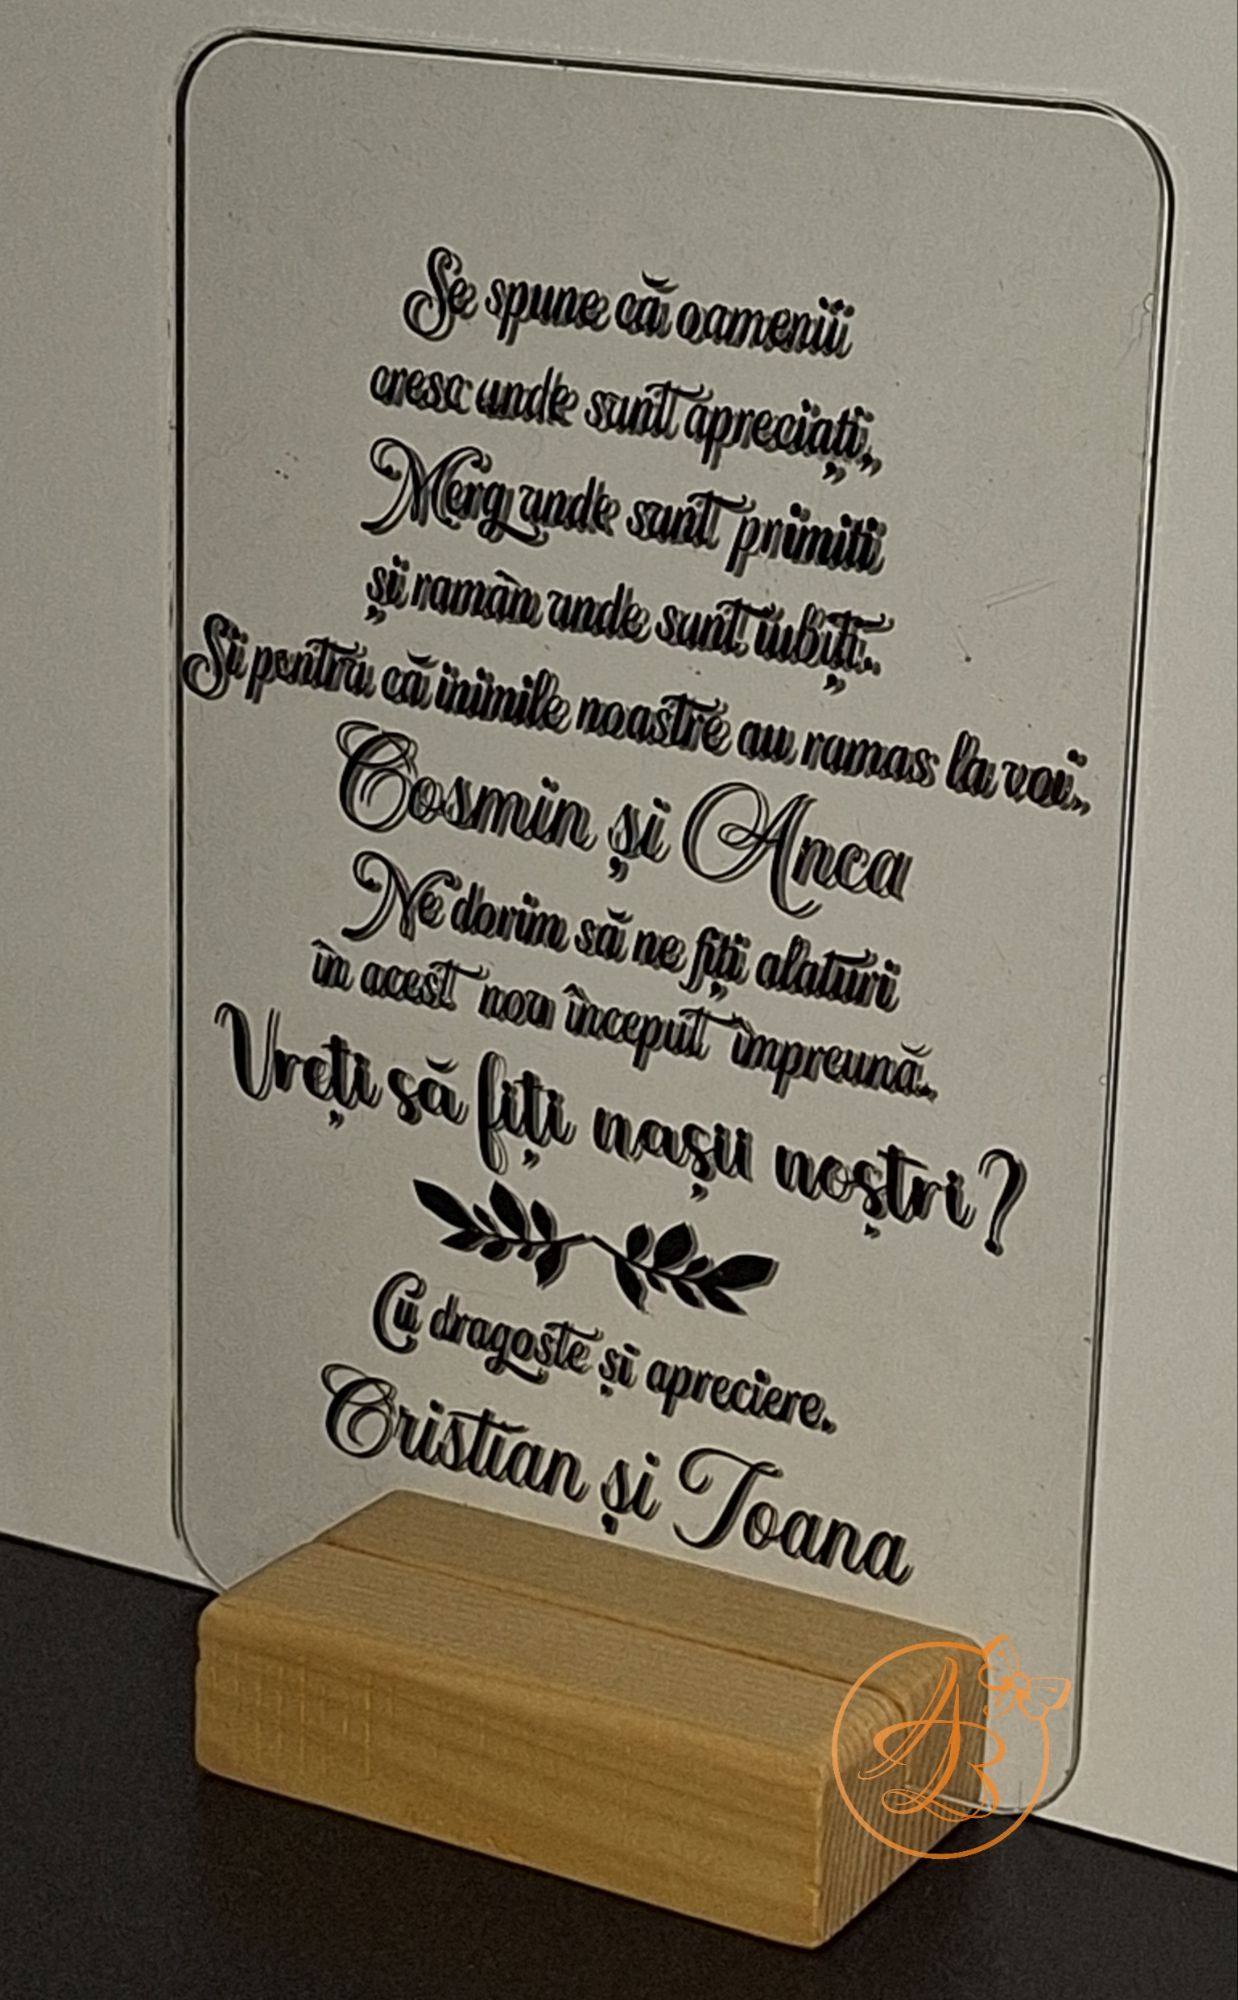 Se spune că oamenii
cresc unde sunt apreciați,
Merg unde sunt primiti
și ramân unde sunt iubiți.
Și pentru că inimile noastre au ramas la voi,
Cosmin și Anca
Ne dorim să ne fiți alaturi
în acest nou început împreună.
Vreți să fiți nașii noștri?
Cu dragoste și apreciere.
Cristian și Ioana
AB